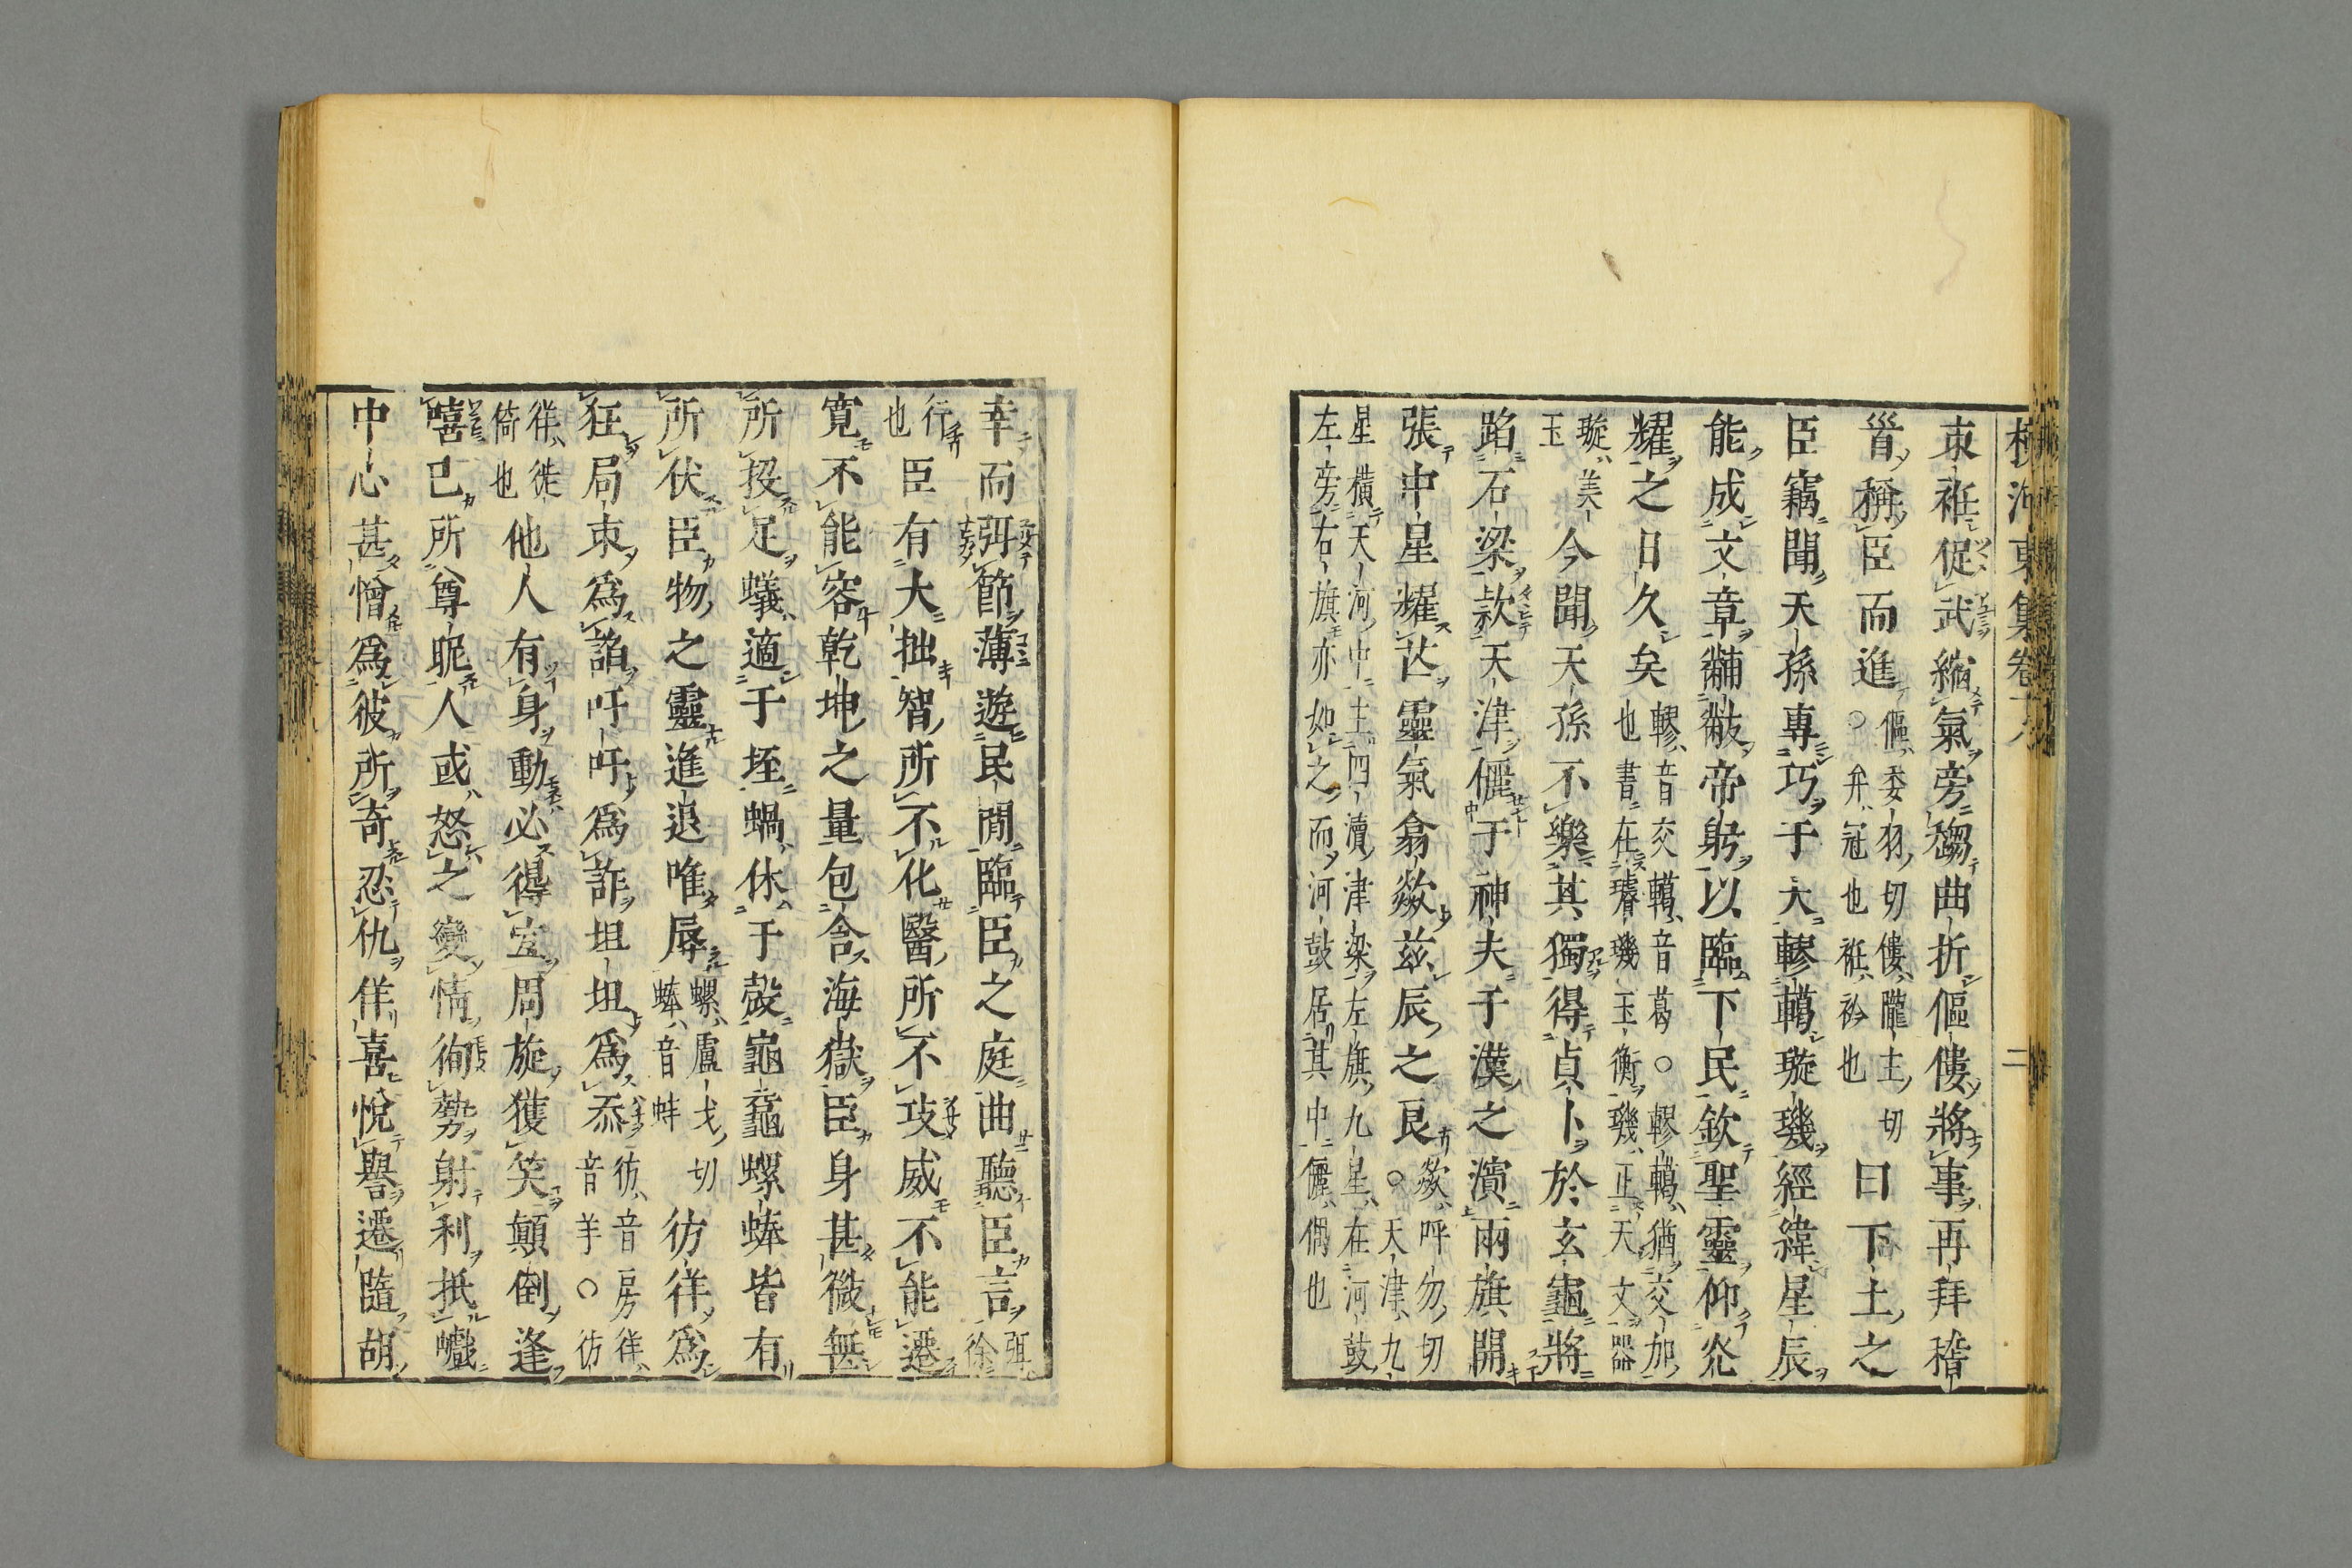 柳河東集卷十八 二
束袵促武縮氣旁趨曲折傴僂將事再拜稽
首稱臣而進傴委羽切僂隴主切○弁冠也袵衿也曰下土之
臣竊聞天孫專巧于天轇轕璇璣經緯星辰
能成文章黼黻帝躬以臨下民欽聖靈仰光
耀之日久矣轇音交轕音葛○轇轕猶交加也書在璿璣玉衡璣正天文器
璇美玉今聞天孫不樂其獨得貞卜於玄龜將
蹈石梁欵天津儷于神夫于漢之濱兩旗開
張中星耀芒靈氣翕歘茲辰之良歘呼勿切○天津九
星橫天河中主四瀆津梁左旗九星在河鼓
左旁右旗亦如之而河鼓居其中儷偶也
幸而弭節薄遊民閒臨臣之庭曲聽臣言弭徐
行也臣有大拙智所不化醫所不攻威不能遷
寬不能容乾坤之量包含海嶽臣身甚微無
所投足蟻適于垤蝸休于殼龜黿螺蜯皆有
所伏臣物之靈進退唯辱螺盧戈切蜯音蚌彷徉為
狂局束為諂吁吁為詐坦坦為忝彷音房徉音羊○彷
徉徙倚也他人有身動必得宜周旋獲笑顛倒逢
嘻己所尊昵人或怒之變情徇勢射利抵巇
中心甚憎為彼所奇忍仇佯喜悅譽遷隨胡